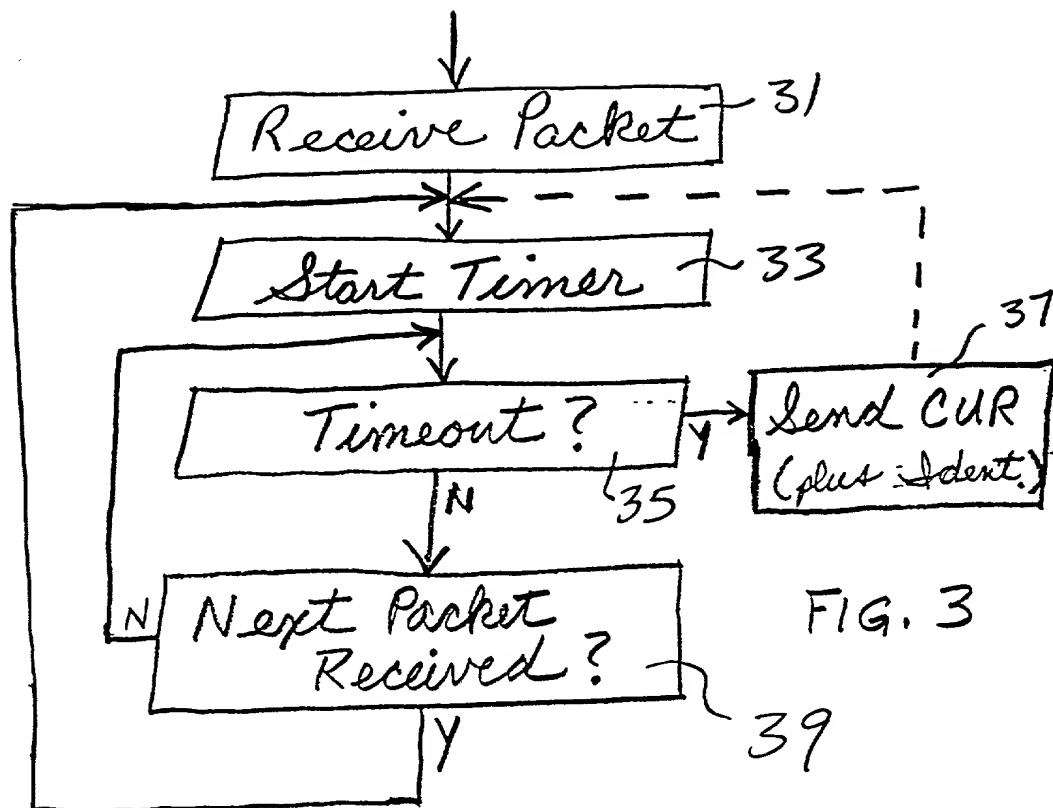 Receive Packet
31
Start Timer
33
Timeout ?
Y
35
N
37
Send CUR
(plus Ident.)
Next Packet
Received ?
N
39
Y
FIG. 3